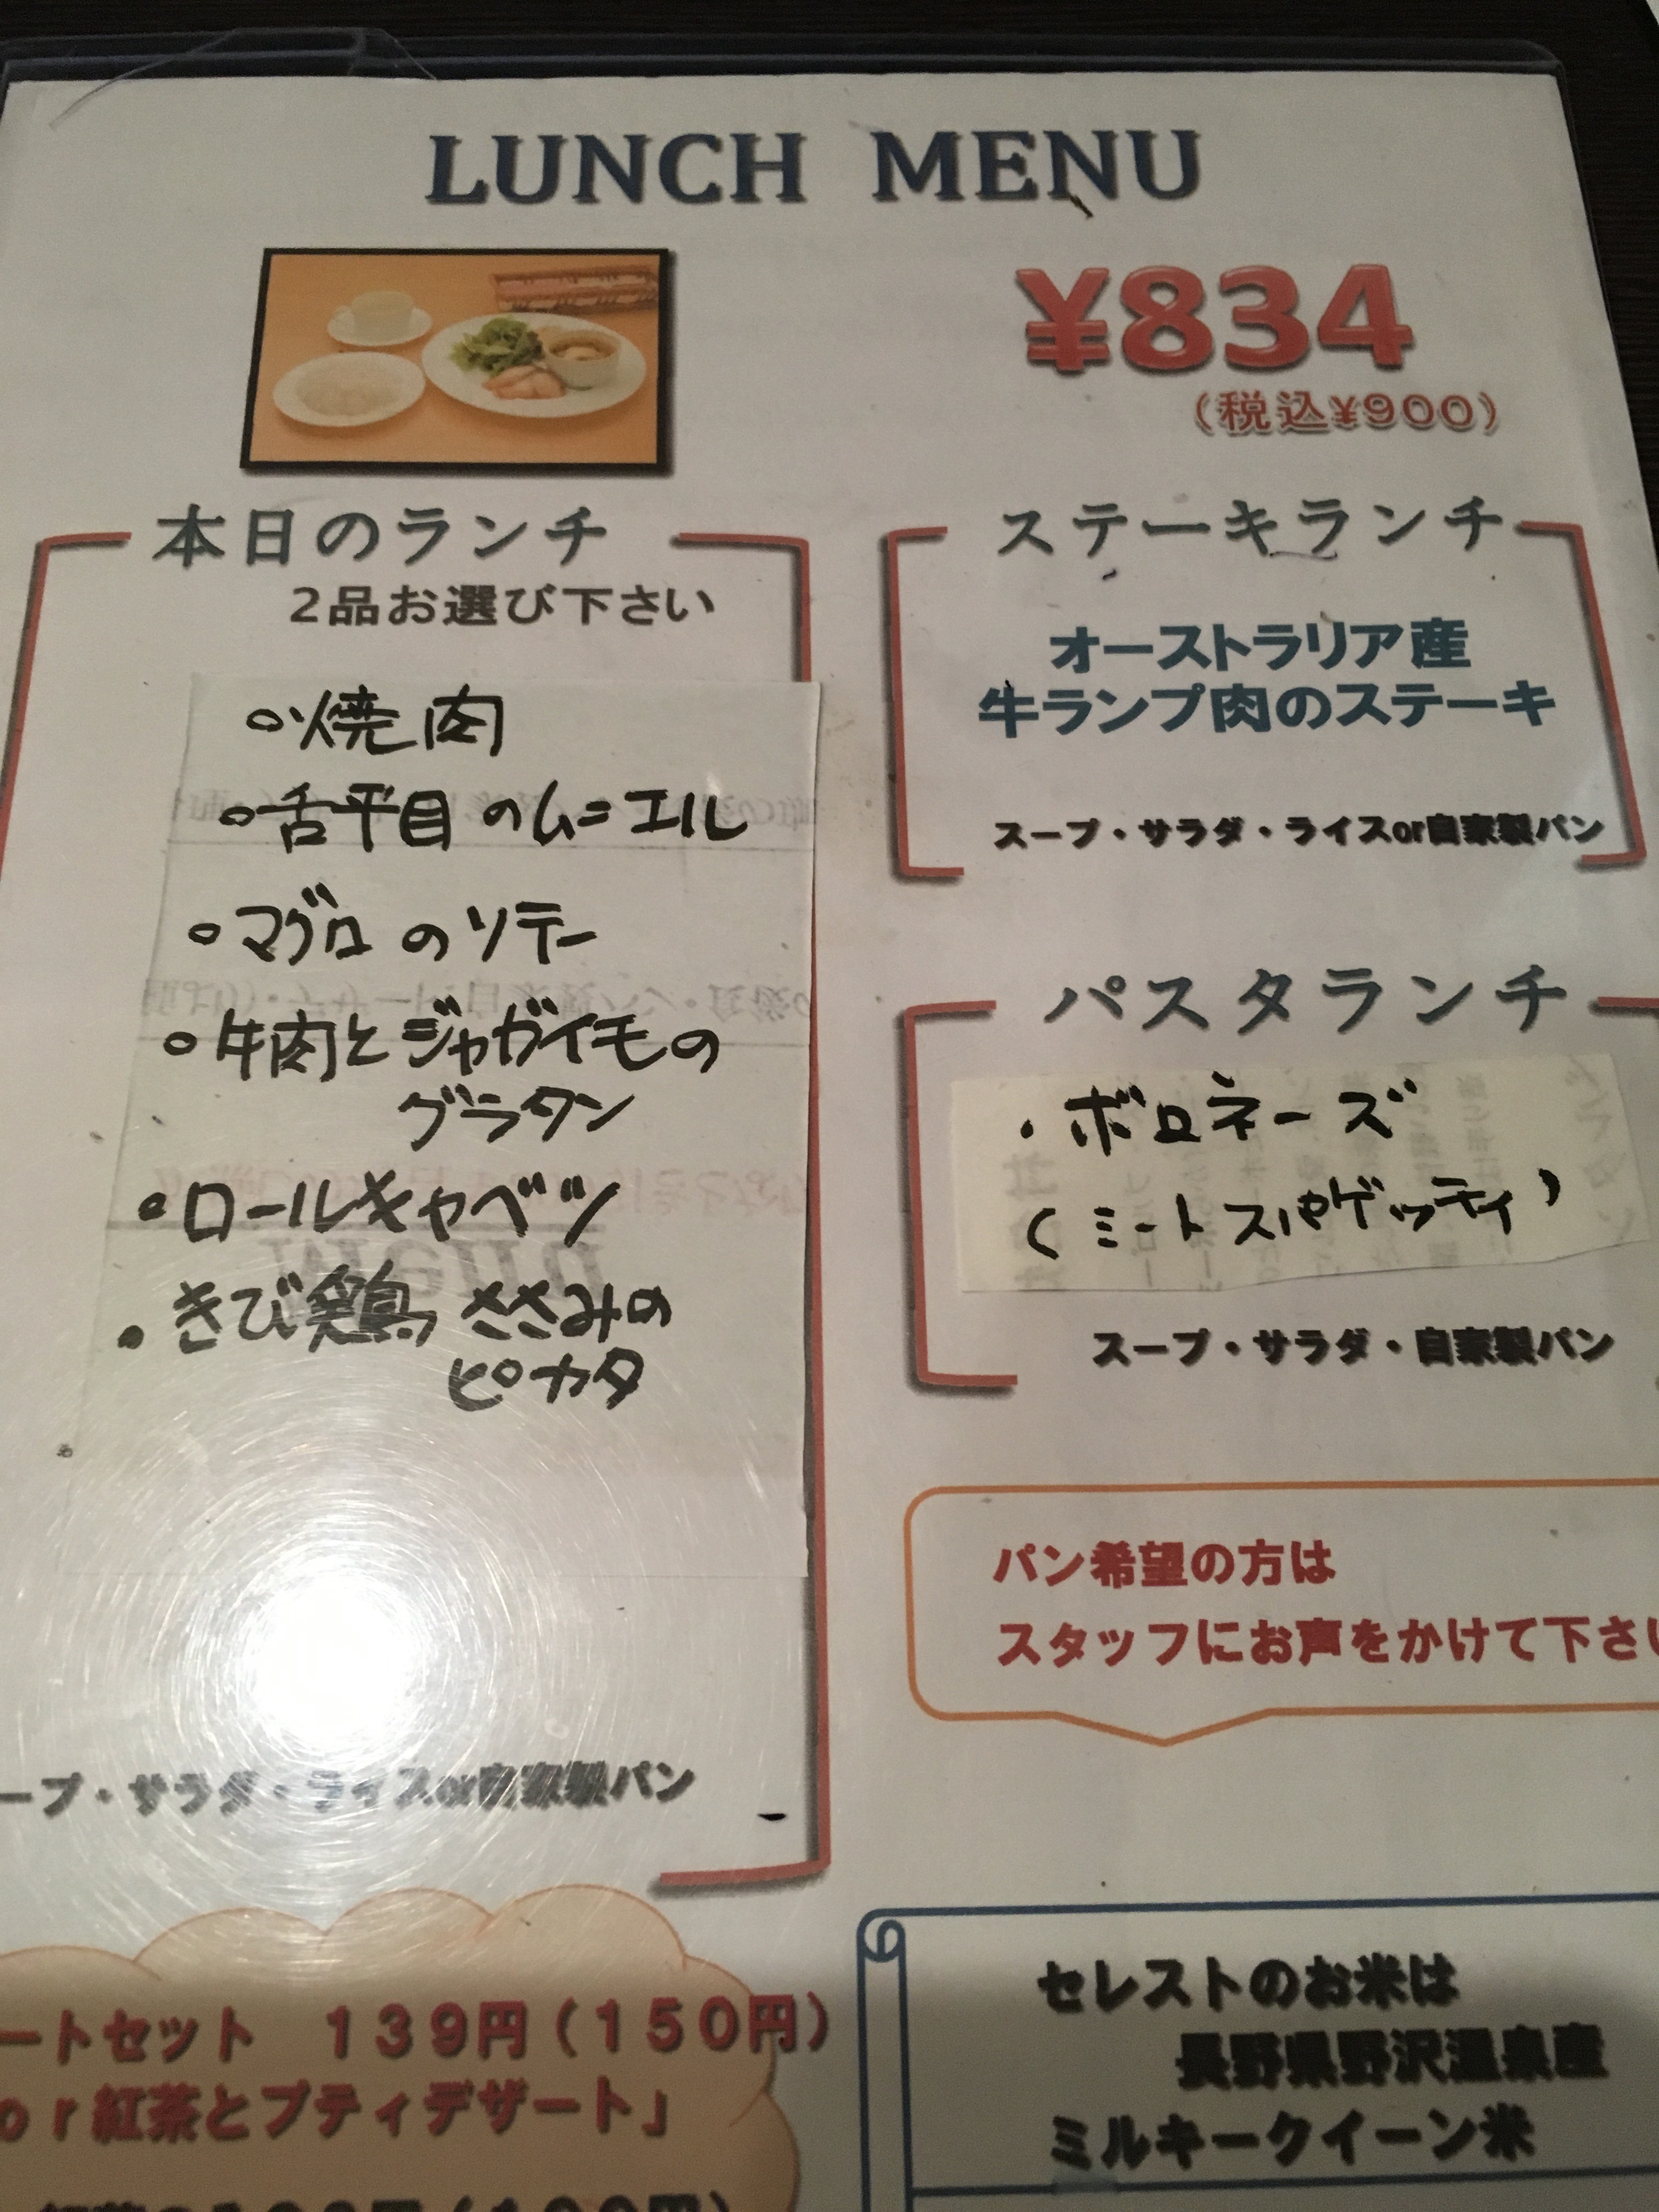 LUNCH MENU
¥834
(税込¥900)
本日のランチ
2品お選び下さい
焼肉
舌平目のムニエル
マグロのソテー
牛肉とジャガイモの
グラタン
ロールキャベツ
きび鶏ささみの
ピカタ
ープ・サラダ・ライスor自家製パン
ステーキランチ
オーストラリア産
牛ランプ肉のステーキ
スープ・サラダ・ライスor自家製パン
パスタランチ
・ボロネーズ
(ミートスパゲッティ)
スープ・サラダ・自家製パン
パン希望の方は
スタッフにお声をかけて下さい
ートセット 139円(150円)
or紅茶とプティデザート」
セレストのお米は
長野県野沢温泉産
ミルキークイーン米